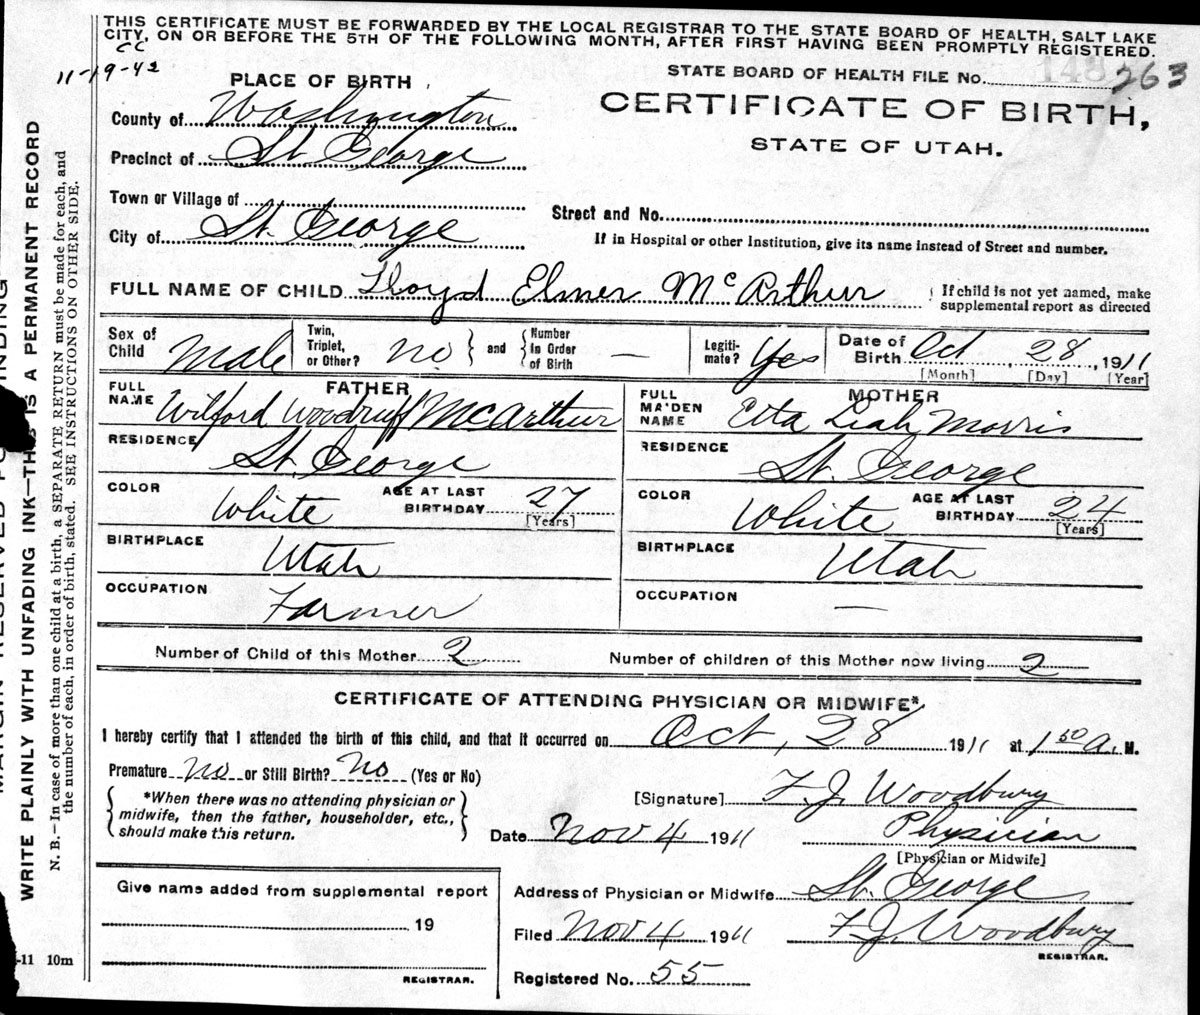 THIS CERTIFICATE MUST BE FORWARDED BY THE LOCAL REGISTRAR TO THE STATE BOARD OF HEALTH, SALT LAKE
CITY, ON OR BEFORE THE 5TH OF THE FOLLOWING MONTH, AFTER FIRST HAVING BEEN PROMPTLY REGISTERED.
CC
11-19-42
PLACE OF BIRTH
STATE BOARD OF HEALTH FILE No. 148 263
CERTIFICATE OF BIRTH,
STATE OF UTAH.
County of Washington
Precinct of St. George
Town or Village of
Street and No.
City of St. George
If in Hospital or other Institution, give its name instead of Street and number.
FULL NAME OF CHILD Lloyd Elmer McArthur
If child is not yet named, make
supplemental report as directed
Sex of Child Male
Twin, Triplet, or Other? no
and
Number in Order of Birth —
Legiti-mate? Yes
Date of Birth Oct, 28, 1911
[Month] [Day] [Year]
FATHER
FULL NAME Wilford Woodruff McArthur
RESIDENCE St. George
COLOR White
AGE AT LAST BIRTHDAY 27
[Years]
BIRTHPLACE Utah
OCCUPATION Farmer
MOTHER
FULL MAIDEN NAME Etta Leah Morris
RESIDENCE St. George
COLOR White
AGE AT LAST BIRTHDAY 24
[Years]
BIRTHPLACE Utah
OCCUPATION —
Number of Child of this Mother 2
Number of children of this Mother now living 2
CERTIFICATE OF ATTENDING PHYSICIAN OR MIDWIFE*
I hereby certify that I attended the birth of this child, and that it occurred on Oct, 28 1911 at 1 50 a. M.
Premature No or Still Birth? No (Yes or No)
*When there was no attending physician or
midwife, then the father, householder, etc.,
should make this return.
[Signature] F. J. Woodbury
Date Nov 4 1911
Physician
[Physician or Midwife]
Give name added from supplemental report
19
REGISTRAR.
Address of Physician or Midwife St. George
Filed Nov 4 1911
F. J. Woodbury
REGISTRAR.
Registered No. 55
-11 10m
WRITE PLAINLY WITH UNFADING INK—THIS IS A PERMANENT RECORD
N. B.—In case of more than one child at a birth, a SEPARATE RETURN must be made for each, and
the number of each, in order of birth, stated. SEE INSTRUCTIONS ON OTHER SIDE.